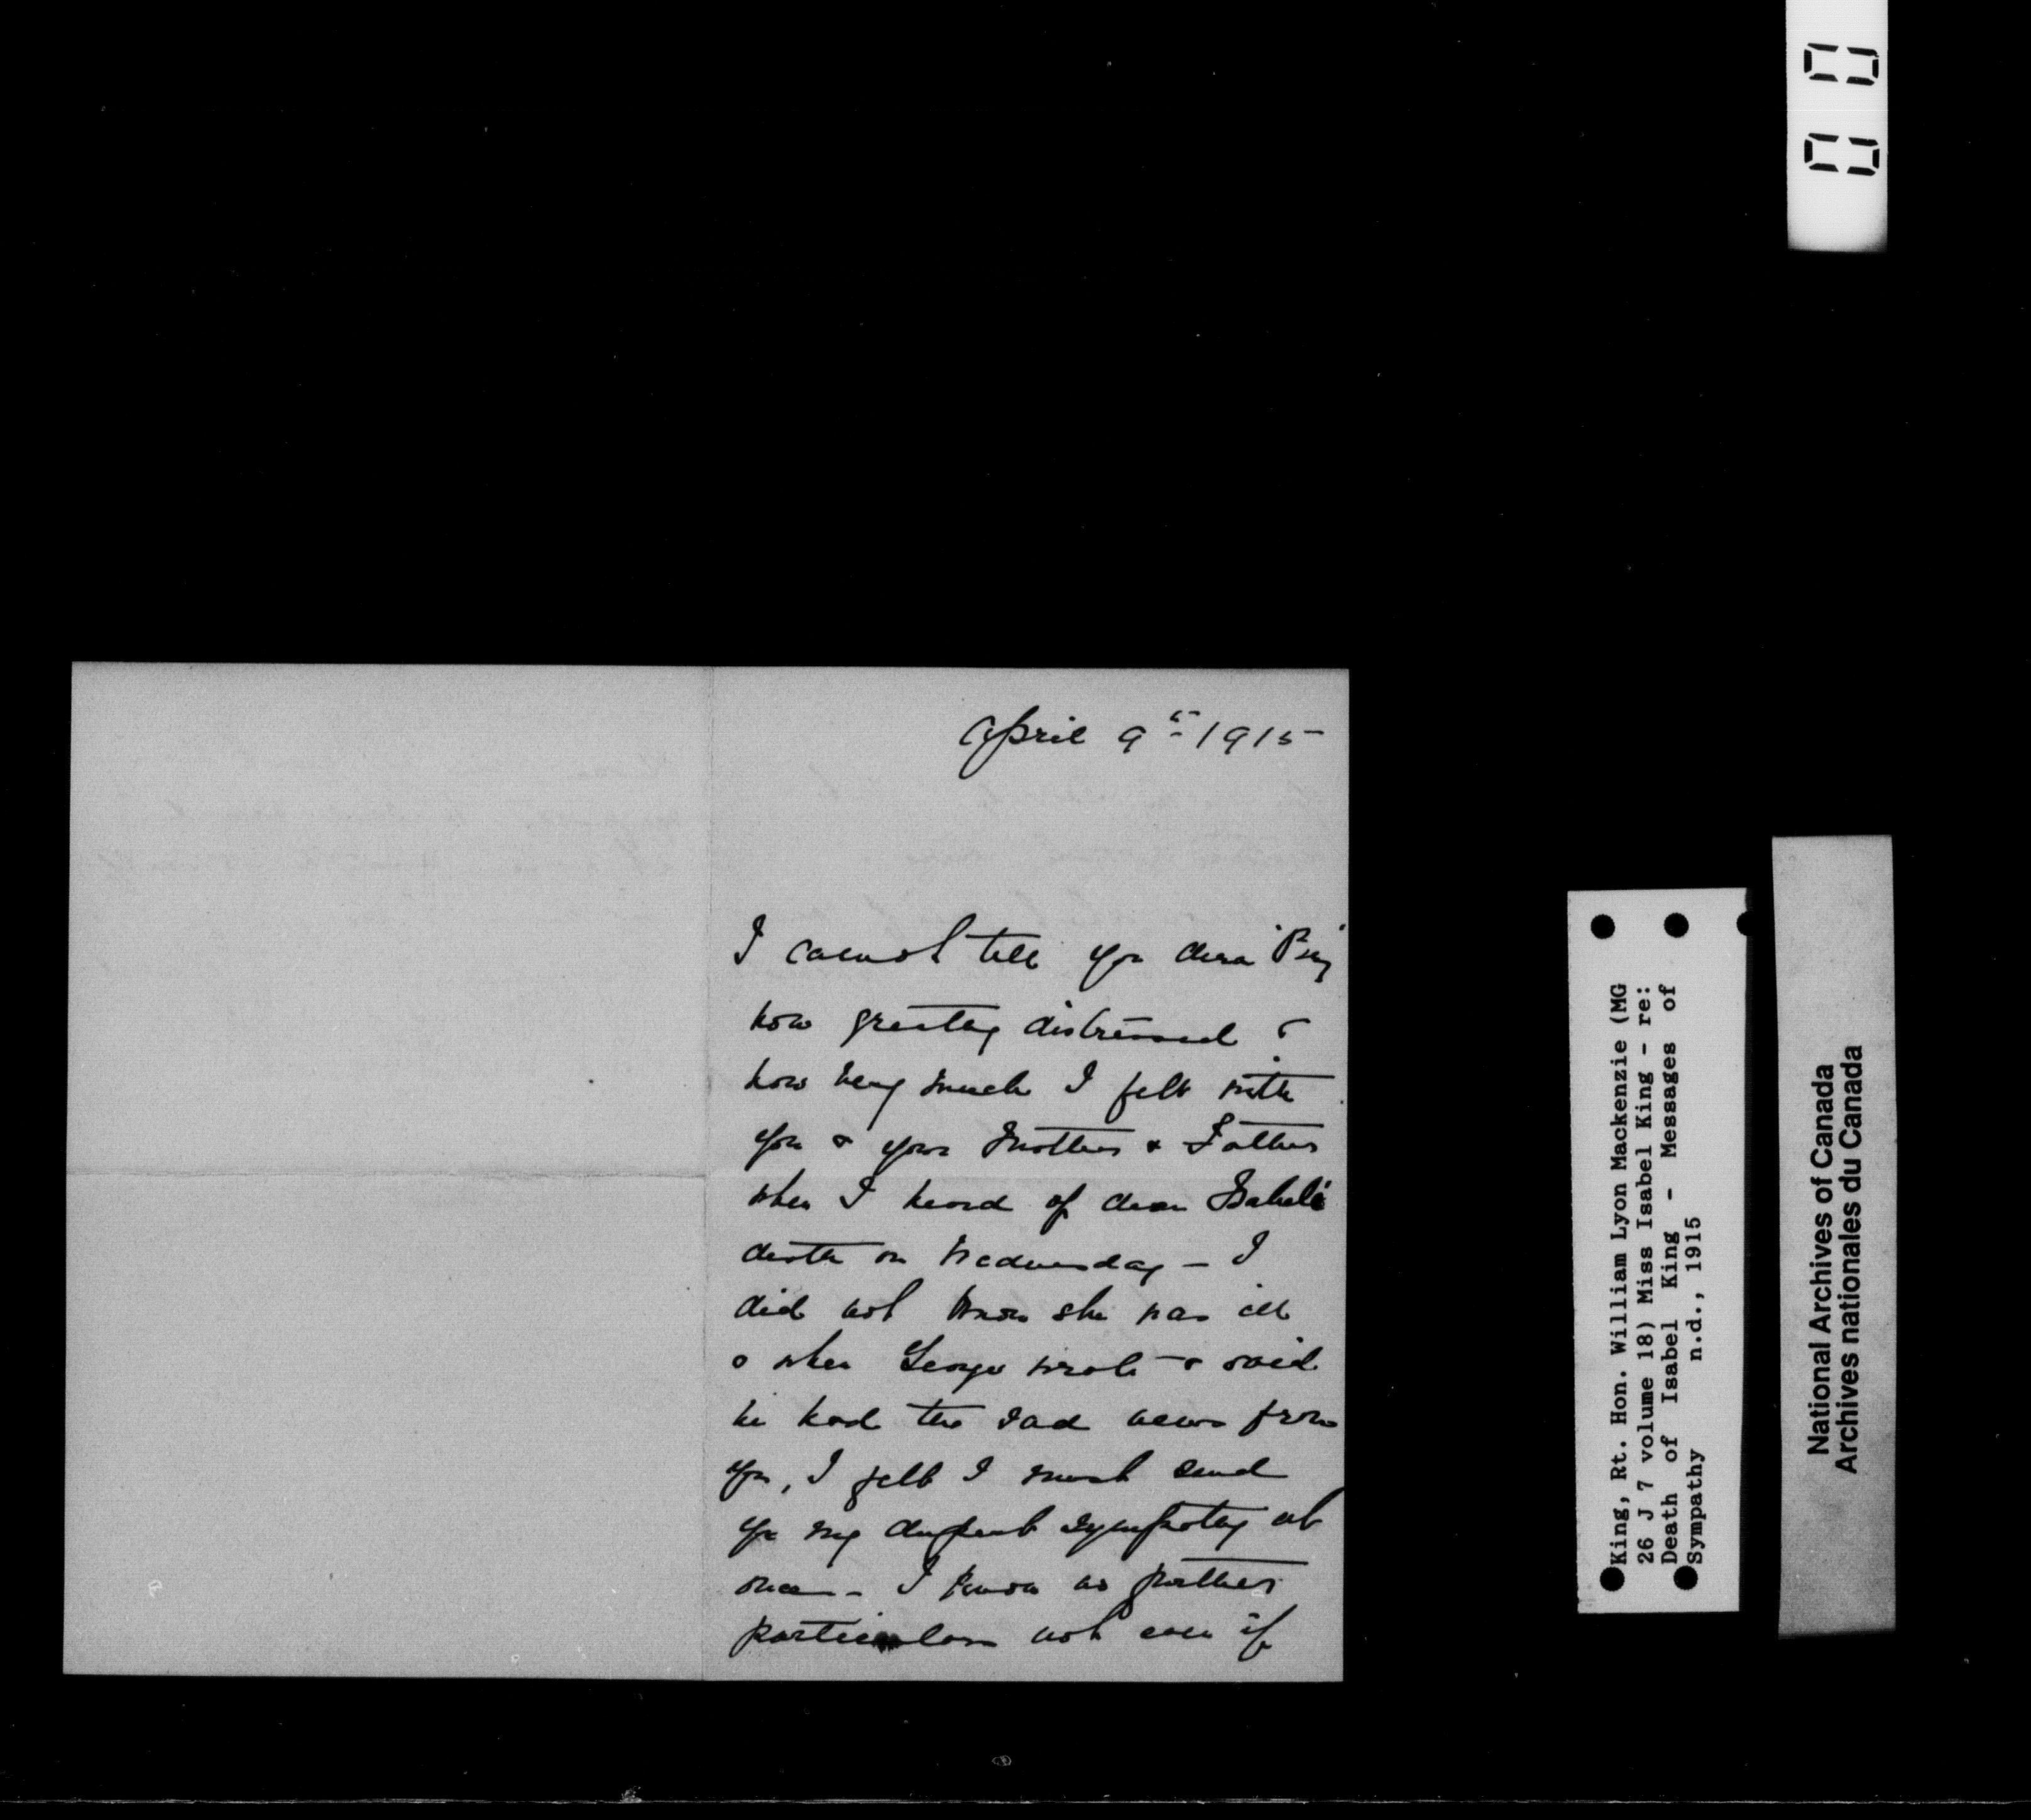 April 9th 1915
I cannot tell you dear
how greatly distressed &
how very much I felt with
you & your Mother & Father
when I heard of dear Isabel's
death on Wednesday – I
did not know she was ill
& when George wrote & said
he had the sad news from
you, I felt I must send
you my deepest sympathy at
once – I know no further
particulars not even if
King, Rt. Hon. William Lyon Mackenzie (MG
26 J 7 volume 18) Miss Isabel King - re:
Death of Isabel King - Messages of
Sympathy n.d., 1915
National Archives of Canada
Archives nationales du Canada